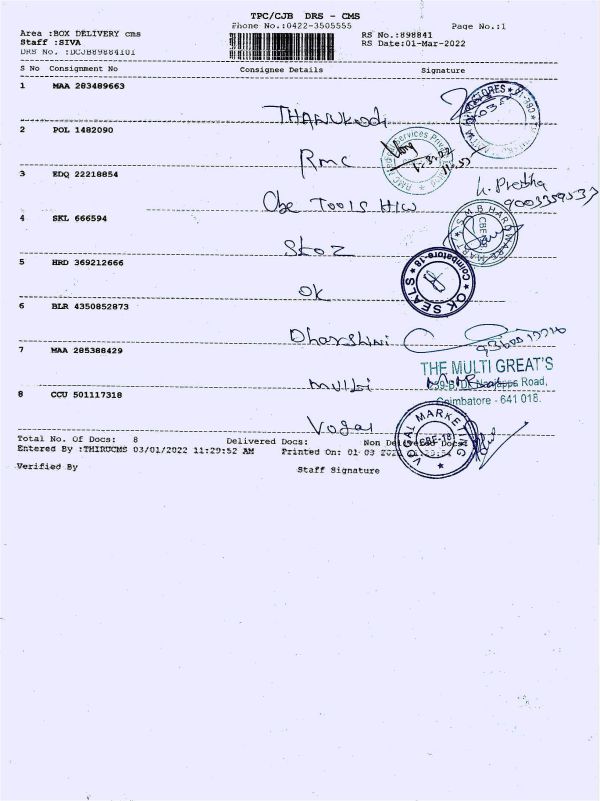 TPC/CJB DRS - CMS
Phone No.:0422-3505555 Page No.:1
Area :BOX DELIVERY cms RS No.:898841
Staff :SIVA RS Date:01-Mar-2022
DRS No. :DCJB89884101
S No Consignment No Consignee Details Signature
1 MAA 283489663
THANUkodi
2 POL 1482090
RMC
3 EDQ 22218854
Cbe TOOLS H/W
4 SKL 666594
SKOZ
5 HRD 369212666
OK
Coimbatore-18 ★ OK SEALS ★
6 BLR 4350852873
Dharshini
7 MAA 285388429
THE MULTI GREAT'S
Multi Road,
Coimbatore - 641 018.
8 CCU 501117318
VOGAL MARKETING CBE-18
Total No. Of Docs: 8 Delivered Docs: Non Delivered Docs:
Entered By :THIRUCMS 03/01/2022 11:29:52 AM Printed On: 01 03 2022 11:29:54
Verified By Staff Signature